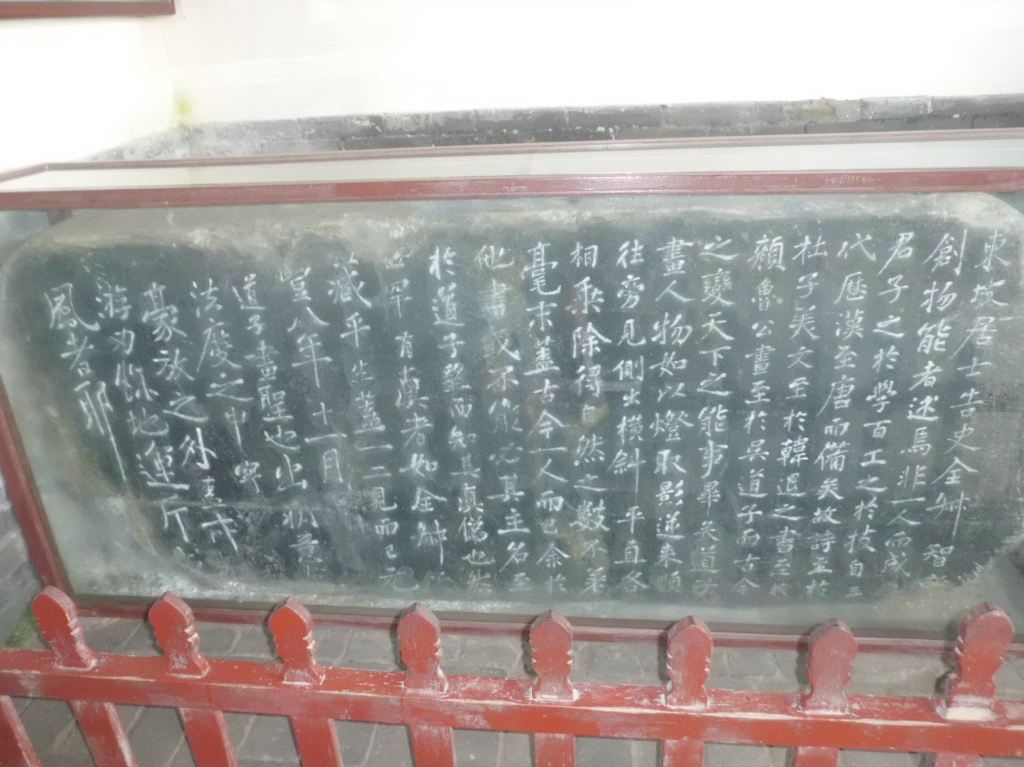 東坡居士告史全叔智
創物能者述焉非一人而成
君子之於學百工之於技自三
代歷漢至唐而備矣故詩至於
杜子美文至於韓退之書至於
顏魯公畫至於吳道子而古今
之變天下之能事畢矣道子
畫人物如以燈取影逆來順
往旁見側出橫斜平直各
相乘除得自然之數不差
毫末蓋古今一人而已余於
他畫或不能必其主名至
於道子望而知其真偽也然
世罕有真者如全叔所
藏平生蓋一二見而已元
豐八年十一月
道子畫聖也出
法度之中寄
豪放之外
游刃餘地運斤
風者耶